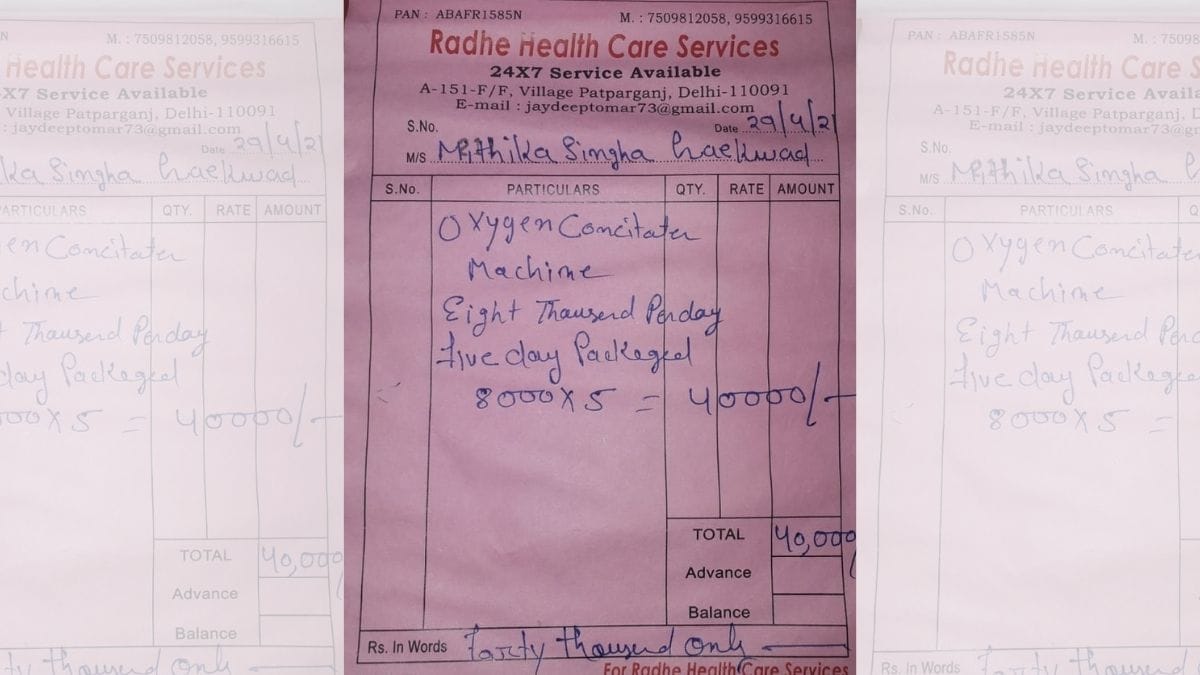 PAN : ABAFR1585N
M. : 7509812058, 9599316615
Radhe Health Care Services
24X7 Service Available
A-151-F/F, Village Patparganj, Delhi-110091
E-mail : jaydeeptomar73@gmail.com
S.No. Date 29/4/21
M/S Mrithika Singha Gaekwad
S.No. PARTICULARS QTY. RATE AMOUNT
Oxygen Concitater
Machine
Eight Thousend Perday
Five day Packeged
8000X5 = 40000/-
TOTAL 40,000
Advance
Balance
Rs. In Words Forty thousend only
For Radhe Health Care Services